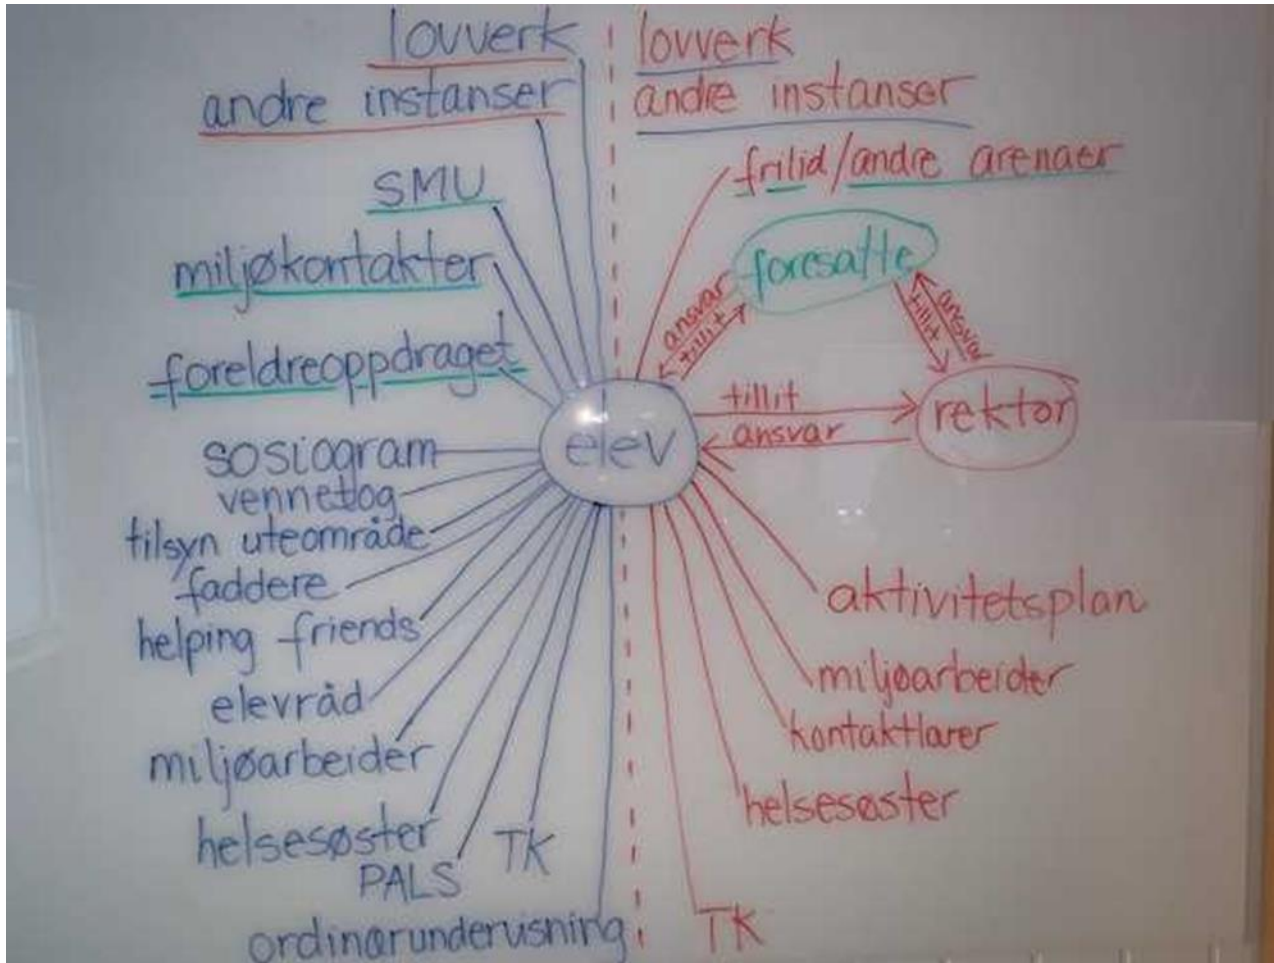 lovverk
andre instanser
SMU
miljøkontakter
foreldreoppdraget
sosiogram
vennetog
tilsyn uteområde
faddere
helping friends
elevråd
miljøarbeider
helsesøster
PALS
TK
ordinærundervisning
elev
lovverk
andre instanser
frilid/andre arenaer
foresatte
ansvar
tillit
tillit
ansvar
tillit
ansvar
rektor
aktivitetsplan
miljøarbeider
kontaktlærer
helsesøster
TK